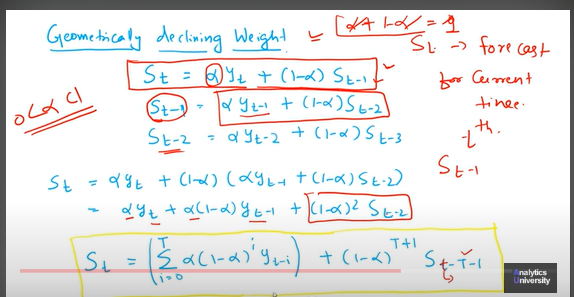 Geometrically declining Weight.
α+ 1-α = 1
S_t = αy_t + (1-α) S_{t-1}
S_t → forecast
for current
time.
t th.
S_{t-1}
0<α<1
S_{t-1} = αy_{t-1} + (1-α) S_{t-2}
S_{t-2} = αy_{t-2} + (1-α) S_{t-3}
S_t = αy_t + (1-α) (αy_{t-1} + (1-α) S_{t-2})
= αy_t + α(1-α) y_{t-1} + (1-α)² S_{t-2}
S_t = (∑_{i=0}^{T} α(1-α)^i y_{t-i}) + (1-α)^{T+1} S_{t-T-1}
Analytics
University